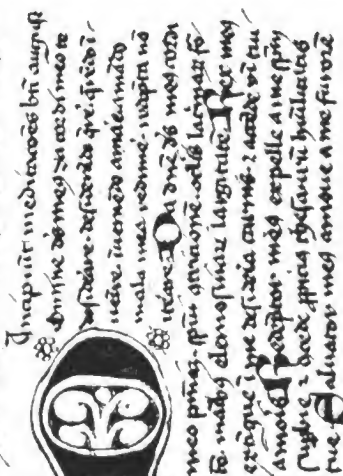 Incipiūt meditacōes bti augusti
domine ds meg da cordi meo te
desiderare desiderādo q̄rē q̄rēdo ī
uenire īueniēdo amare amādo
mala mea redimē redēpta nō
iterare Da dn̄e ds meg cordi
meo pn̄iaʒ spūi cōtritionē oclīs lacrimaʒ fō
tē mālibʒ elemosinae largitatē Rex meg
extīgue ī me desideria carnis ⁊ accēde ignē tui
amoris Redēptor meg expelle a me spm̄
supbie ⁊ cōcede ppitig thesaurū hūilitatis
tue Saluator meg amoue a me furorē